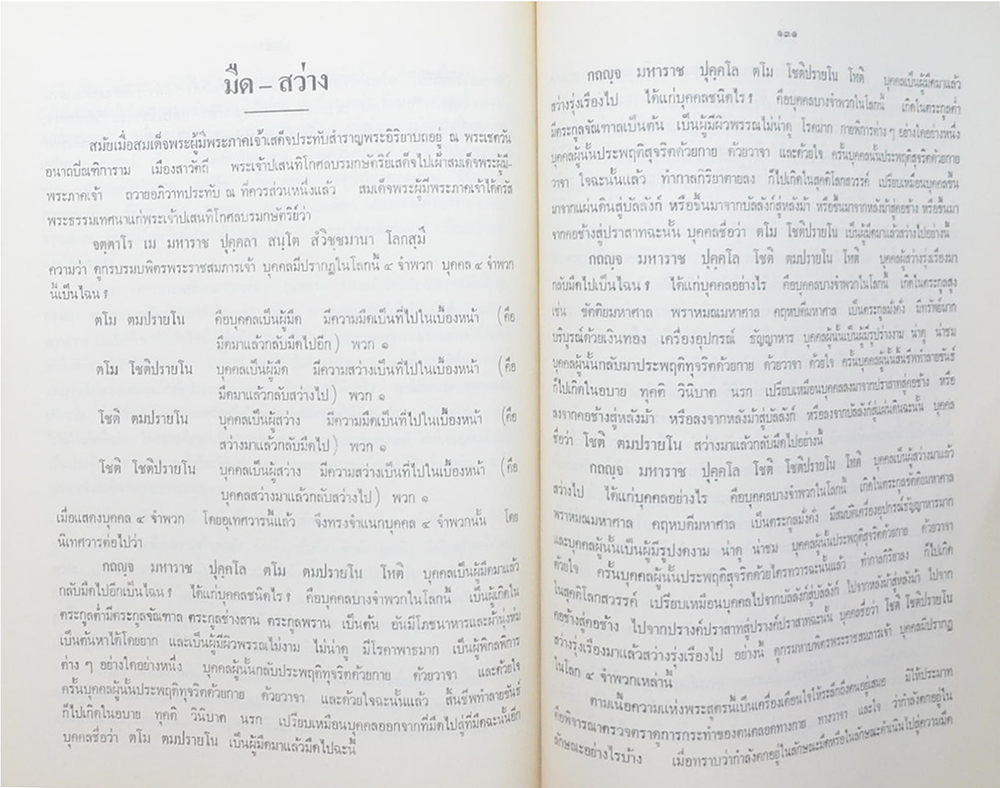 มืด – สว่าง
สมัยเมื่อสมเด็จพระผู้มีพระภาคเจ้าเสด็จประทับสำราญพระอิริยาบถอยู่ ณ พระเชตวัน
อนาถบิณฑิการาม เมืองสาวัตถี พระเจ้าปเสนทิโกศลบรมกษัตริย์เสด็จไปเฝ้าสมเด็จพระผู้มี-
พระภาคเจ้า ถวายอภิวาทประทับ ณ ที่ควรส่วนหนึ่งแล้ว สมเด็จพระผู้มีพระภาคเจ้าได้ตรัส
พระธรรมเทศนาแก่พระเจ้าปเสนทิโกศลบรมกษัตริย์ว่า
จตฺตาโร เม มหาราช ปุคฺคลา สนฺโต สํวิชฺชมานา โลกสฺมึ
ความว่า ดูกรบรมบพิตรพระราชสมภารเจ้า บุคคลมีปรากฏในโลกนี้ ๔ จำพวก บุคคล ๔ จำพวก
นี้เป็นไฉน ?
ตโม ตมปรายโน คือบุคคลเป็นผู้มืด มีความมืดเป็นที่ไปในเบื้องหน้า (คือ
มืดมาแล้วกลับมืดไปอีก) พวก ๑
ตโม โชติปรายโน บุคคลเป็นผู้มืด มีความสว่างเป็นที่ไปในเบื้องหน้า (คือ
มืดมาแล้วกลับสว่างไป) พวก ๑
โชติ ตมปรายโน บุคคลเป็นผู้สว่าง มีความมืดเป็นที่ไปในเบื้องหน้า (คือ
สว่างมาแล้วกลับมืดไป) พวก ๑
โชติ โชติปรายโน บุคคลเป็นผู้สว่าง มีความสว่างเป็นที่ไปในเบื้องหน้า (คือ
บุคคลสว่างมาแล้วกลับสว่างไป) พวก ๑
เมื่อแสดงบุคคล ๔ จำพวก โดยอุเทศวารนี้แล้ว จึงทรงจำแนกบุคคล ๔ จำพวกนั้น โดย
นิเทศวารต่อไปว่า
กถญฺจ มหาราช ปุคฺคโล ตโม ตมปรายโน โหติ บุคคลเป็นผู้มืดมาแล้ว
กลับมืดไปอีกเป็นไฉน ? ได้แก่บุคคลชนิดไร ? คือบุคคลบางจำพวกในโลกนี้ เป็นผู้เกิดใน
ตระกูลต่ำมีตระกูลจัณฑาล ตระกูลช่างสาน ตระกูลพราน เป็นต้น อันมีโภชนาหารและผ้านุ่งห่ม
เป็นต้นหาได้โดยยาก และเป็นผู้มีผิวพรรณไม่งาม ไม่น่าดู มีโรคาพาธมาก เป็นผู้พิกลพิการ
ต่าง ๆ อย่างใดอย่างหนึ่ง บุคคลผู้นั้นกลับประพฤติทุจริตด้วยกาย ด้วยวาจา และด้วยใจ
ครั้นบุคคลผู้นั้นประพฤติทุจริตด้วยกาย ด้วยวาจา และด้วยใจฉะนั้นแล้ว สิ้นชีพทำลายขันธ์
ก็ไปเกิดในอบาย ทุคติ วินิบาต นรก เปรียบเหมือนบุคคลออกจากที่มืดไปสู่ที่มืดฉะนั้นอีก
บุคคลชื่อว่า ตโม ตมปรายโน เป็นผู้มืดมาแล้วมืดไปฉะนี้
๑๓๑
กถญฺจ มหาราช ปุคฺคโล ตโม โชติปรายโน โหติ บุคคลเป็นผู้มืดมาแล้ว
สว่างรุ่งเรืองไป ได้แก่บุคคลชนิดไร ? คือบุคคลบางจำพวกในโลกนี้ เกิดในตระกูลต่ำ
มีตระกูลจัณฑาลเป็นต้น เป็นผู้มีผิวพรรณไม่น่าดู โรคมาก กายพิการต่างๆ อย่างใดอย่างหนึ่ง
บุคคลผู้นั้นประพฤติสุจริตด้วยกาย ด้วยวาจา และด้วยใจ ครั้นบุคคลนั้นประพฤติสุจริตด้วยกาย
วาจา ใจฉะนั้นแล้ว ทำกาลกิริยาตายลง ก็ไปเกิดในสุคติโลกสวรรค์ เปรียบเหมือนบุคคลขึ้น
มาจากแผ่นดินสู่บัลลังก์ หรือขึ้นมาจากบัลลังก์สู่หลังม้า หรือขึ้นมาจากหลังม้าสู่คอช้าง หรือขึ้นมา
จากคอช้างสู่ปราสาทฉะนั้น บุคคลชื่อว่า ตโม โชติ ปรายโน เป็นผู้มืดมาแล้วสว่างไปอย่างนี้
กถญฺจ มหาราช ปุคฺคโล โชติ ตมปรายโน โหติ บุคคลผู้สว่างรุ่งเรืองมา
กลับมืดไปเป็นไฉน ? ได้แก่บุคคลอย่างไร คือบุคคลบางจำพวกในโลกนี้ เกิดในตระกูลสูง
เช่น ขัตติยมหาศาล พราหมณมหาศาล คฤหบดีมหาศาล เป็นตระกูลมั่งคั่ง มีทรัพย์มาก
บริบูรณ์ด้วยเงินทอง เครื่องอุปกรณ์ ธัญญาหาร บุคคลผู้นั้นเป็นผู้มีรูปร่างงาม น่าดู น่าชม
บุคคลผู้นั้นกลับมาประพฤติทุจริตด้วยกาย ด้วยวาจา ด้วยใจ ครั้นบุคคลผู้นั้นสิ้นชีพทำลายขันธ์
ก็ไปเกิดในอบาย ทุคติ วินิบาต นรก เปรียบเหมือนบุคคลลงมาจากปราสาทสู่คอช้าง หรือ
ลงจากคอช้างสู่หลังม้า หรือลงจากหลังม้าสู่บัลลังก์ หรือลงจากบัลลังก์สู่แผ่นดินฉะนั้น บุคคล
ชื่อว่า โชติ ตมปรายโน สว่างมาแล้วกลับมืดไปอย่างนี้
กถญฺจ มหาราช ปุคฺคโล โชติ โชติปรายโน โหติ บุคคลเป็นผู้สว่างมาแล้ว
สว่างไป ได้แก่บุคคลอย่างไร คือบุคคลบางจำพวกในโลกนี้ เกิดในตระกูลขัตติยมหาศาล
พราหมณมหาศาล คฤหบดีมหาศาล เป็นตระกูลมั่งคั่ง มีสมบัติเครื่องอุปกรณ์ธัญญาหารมาก
และบุคคลผู้นั้นเป็นผู้มีรูปงดงาม น่าดู น่าชม บุคคลผู้นั้นประพฤติสุจริตด้วยกาย ด้วยวาจา
ด้วยใจ ครั้นบุคคลผู้นั้นประพฤติสุจริตด้วยไตรทวารฉะนั้นแล้ว ทำกาลกิริยาลง ก็ไปเกิด
ในสุคติโลกสวรรค์ เปรียบเหมือนบุคคลไปจากบัลลังก์สู่บัลลังก์ ไปจากหลังม้าสู่หลังม้า ไปจาก
คอช้างสู่คอช้าง ไปจากปรางค์ปราสาทสู่ปรางค์ปราสาทฉะนั้น บุคคลชื่อว่า โชติ โชติปรายโน
สว่างรุ่งเรืองมาแล้วสว่างรุ่งเรืองไป อย่างนี้ ดูกรมหาบพิตรพระราชสมภารเจ้า บุคคลมีปรากฏ
ในโลก ๔ จำพวกเหล่านี้
ตามเนื้อความแห่งพระสูตรนี้เป็นเครื่องเตือนใจให้ระลึกถึงตนอยู่เสมอ มิให้ประมาท
คือพิจารณาตรวจตราดูการกระทำของตนตลอดทางกาย ทางวาจา และใจ ว่ากำลังตกอยู่ใน
ลักษณะอย่างไรบ้าง เมื่อทราบว่ากำลังตกอยู่ในลักษณะมืดหรือในลักษณะดำเนินไปสู่ความมืด